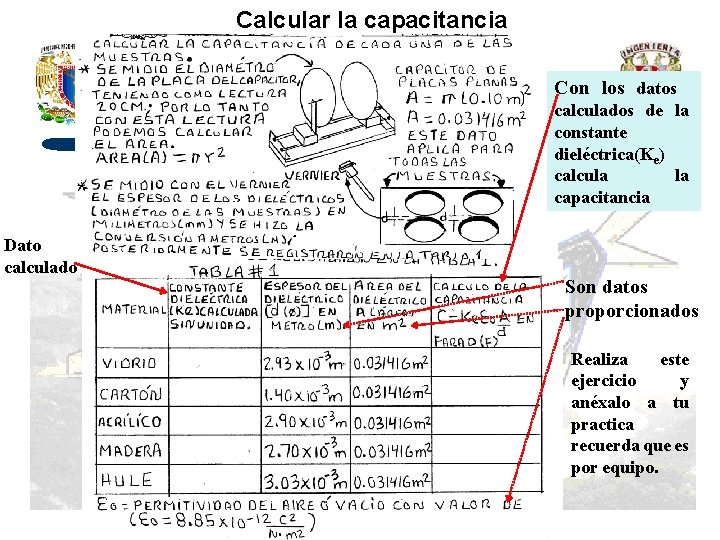 Calcular la capacitancia
CALCULAR LA CAPACITANCIA DE CADA UNA DE LAS
MUESTRAS.
* SE MIDIO EL DIAMÉTRO
DE LA PLACA DEL CAPACITOR,
TENIENDO COMO LECTURA
20CM; POR LO TANTO
CON ESTA LECTURA
PODEMOS CALCULAR
EL AREA.
AREA(A) = πr²
CAPACITOR DE
PLACAS PLANAS.
A = π(0.10m)²
A = 0.031416m²
ESTE DATO
APLICA PARA
TODAS LAS
MUESTRAS.
VERNIER
* SE MIDIO CON EL VERNIER
EL ESPESOR DE LOS DIELÉCTRICOS
(DIÁMETRO DE LAS MUESTRAS) EN
MILIMETROS(mm) Y SE HIZO LA
CONVERSIÓN A METROS(M);
POSTERIORMENTE SE REGISTRARÓN EN LA TABLA 1.
d
d
Con los datos
calculados de la
constante
dieléctrica(Ke)
calcula la
capacitancia
Dato
calculado
TABLA #1
MATERIAL
CONSTANTE
DIELÉCTRICA
(KE) CALCULADA
SIN UNIDAD.
ESPESOR DEL
DIELÉCTRICO
[d (Ø)] EN
METRO(M)
AREA DEL
DIELÉCTRICO
A (AREA)
EN m²
CALCULO DE LA
CAPACITANCIA
C = KEεo A/d
EN
FARAD (F)
VIDRIO 2.93x10⁻³m 0.031416m²
CARTÓN 1.40x10⁻³m 0.031416m²
ACRÍLICO 2.90x10⁻³m 0.031416m²
MADERA 2.70x10⁻³m 0.031416m²
HULE 3.03x10⁻³m 0.031416m²
εo = PERMITIVIDAD DEL AIRE Ó VACIO CON VALOR DE
(εo = 8.85x10⁻¹² C²/N·m²)
Son datos
proporcionados
Realiza este
ejercicio y
anéxalo a tu
practica
recuerda que es
por equipo.